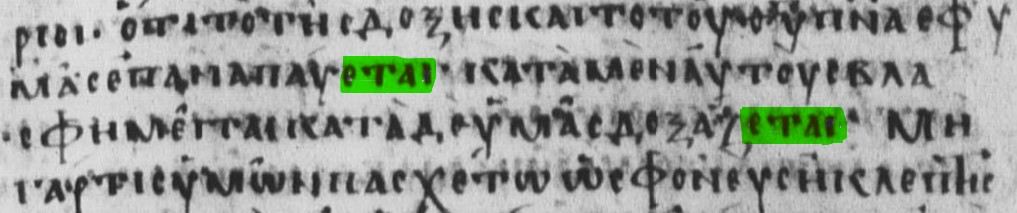 ριοι· ὅτι τὸ τῆς δόξης καὶ τὸ τοῦ θ̅υ̅ π̅ν̅α̅ ἐφ υ
μᾶς ἐπαναπαύεται· κατὰ μὲν αὐτοὺς βλα
σφημεῖται κατὰ δὲ ὑμᾶς δοξάζεται· μὴ
γάρ τις ὑμῶν πασχέτω ὡς φονεὺς ἢ κλέπτης